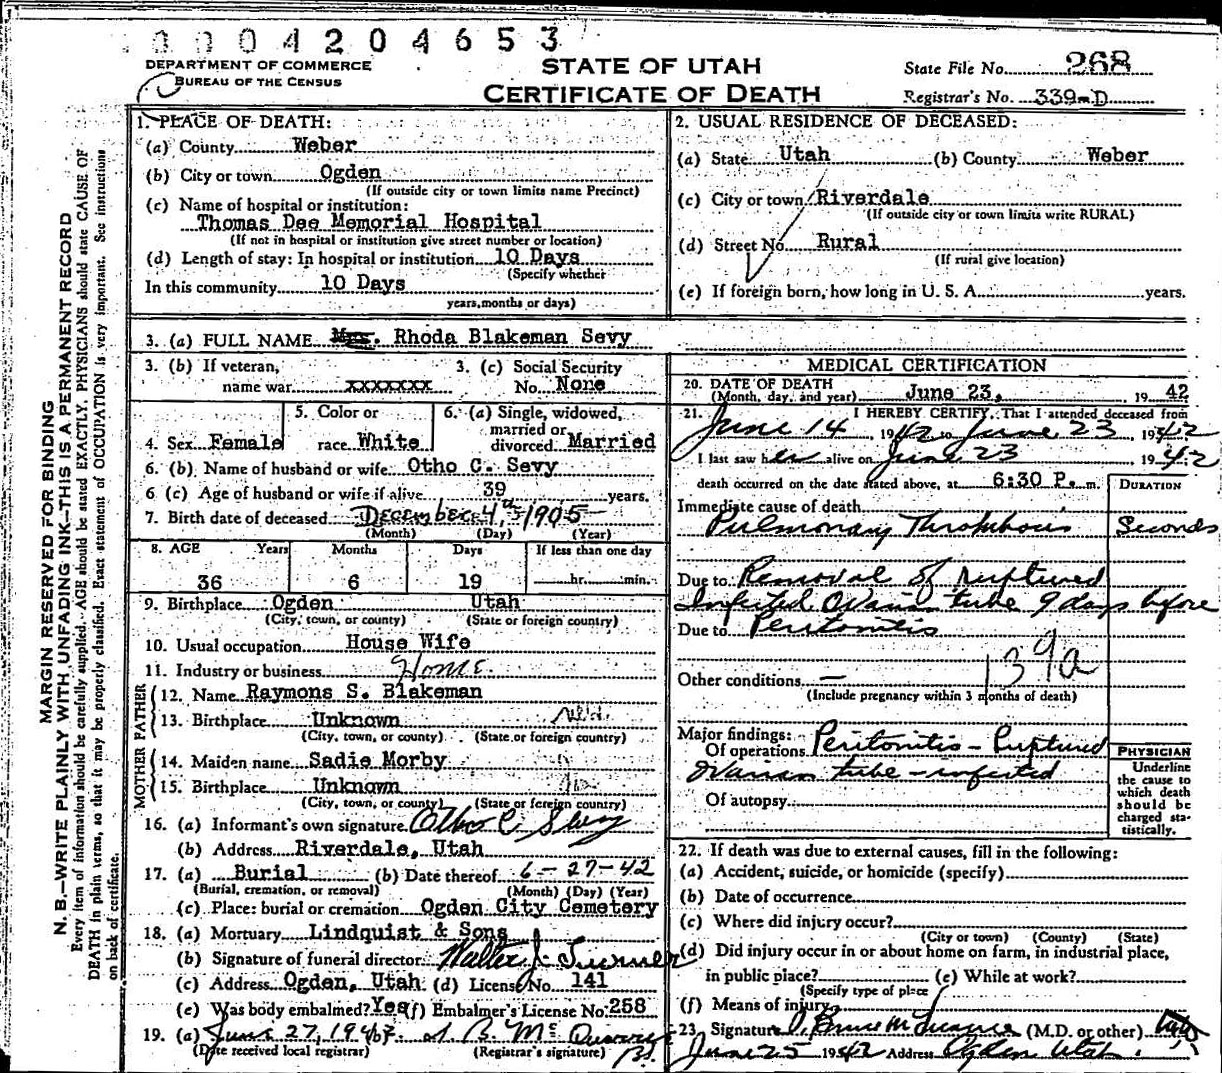 0004204653
DEPARTMENT OF COMMERCE
BUREAU OF THE CENSUS
STATE OF UTAH
CERTIFICATE OF DEATH
State File No. 268
Registrar's No. 339-D
MARGIN RESERVED FOR BINDING
N. B.—WRITE PLAINLY WITH UNFADING INK—THIS IS A PERMANENT RECORD
Every item of information should be carefully supplied. AGE should be stated EXACTLY. PHYSICIANS should state CAUSE OF
DEATH in plain terms, so that it may be properly classified. Exact statement of OCCUPATION is very important. See instructions
on back of certificate.
1. PLACE OF DEATH:
(a) County Weber
(b) City or town Ogden
(If outside city or town limits name Precinct)
(c) Name of hospital or institution:
Thomas Dee Memorial Hospital
(If not in hospital or institution give street number or location)
(d) Length of stay: In hospital or institution 10 Days
(Specify whether
In this community 10 Days
years, months or days)
2. USUAL RESIDENCE OF DECEASED:
(a) State Utah (b) County Weber
(c) City or town Riverdale
(If outside city or town limits write RURAL)
(d) Street No. Rural
(If rural give location)
(e) If foreign born, how long in U. S. A. years.
3. (a) FULL NAME Mrs. Rhoda Blakeman Sevy
3. (b) If veteran,
name war xxxxxxx
3. (c) Social Security
No. None
4. Sex Female
5. Color or
race White
6. (a) Single, widowed,
married or
divorced Married
6. (b) Name of husband or wife Otho C. Sevy
6 (c) Age of husband or wife if alive 39 years.
7. Birth date of deceased December 4th 1905
(Month) (Day) (Year)
8. AGE Years Months Days If less than one day
36 6 19 hr. min.
9. Birthplace Ogden Utah
(City, town, or county) (State or foreign country)
10. Usual occupation House Wife
11. Industry or business Home.
FATHER
12. Name Raymons S. Blakeman
13. Birthplace Unknown
(City, town, or county) (State or foreign country)
MOTHER
14. Maiden name Sadie Morby
15. Birthplace Unknown
(City, town, or county) (State or foreign country)
16. (a) Informant's own signature Otho C Sevy
(b) Address Riverdale, Utah
17. (a) Burial (b) Date thereof 6-27-42
(Burial, cremation, or removal) (Month) (Day) (Year)
(c) Place: burial or cremation Ogden City Cemetery
18. (a) Mortuary Lindquist & Sons
(b) Signature of funeral director Walter J. Turner
(c) Address Ogden, Utah (d) License No. 141
(e) Was body embalmed? Yes (f) Embalmer's License No. 258
19. (a) June 27, 1942 (b)
(Date received local registrar) (Registrar's signature)
MEDICAL CERTIFICATION
20. DATE OF DEATH
(Month, day, and year) June 23, 19 42
21. I HEREBY CERTIFY, That I attended deceased from
June 14, 1942 to June 23 1942
I last saw her alive on June 23 1942
death occurred on the date stated above, at 6:30 P. m.
DURATION
Immediate cause of death
Pulmonary Thrombosis Seconds
Due to Removal of ruptured
Infected Ovarian tube 9 days before
Due to Peritonitis
139a
Other conditions —
(Include pregnancy within 3 months of death)
Major findings:
Of operations Peritonitis - Ruptured
Ovarian tube - infected
Of autopsy
PHYSICIAN
Underline
the cause to
which death
should be
charged sta-
tistically.
22. If death was due to external causes, fill in the following:
(a) Accident, suicide, or homicide (specify)
(b) Date of occurrence
(c) Where did injury occur?
(City or town) (County) (State)
(d) Did injury occur in or about home on farm, in industrial place,
in public place? (e) While at work?
(Specify type of place
(f) Means of injury
23. Signature (M.D. or other)
June 25 1942 Address Ogden Utah.